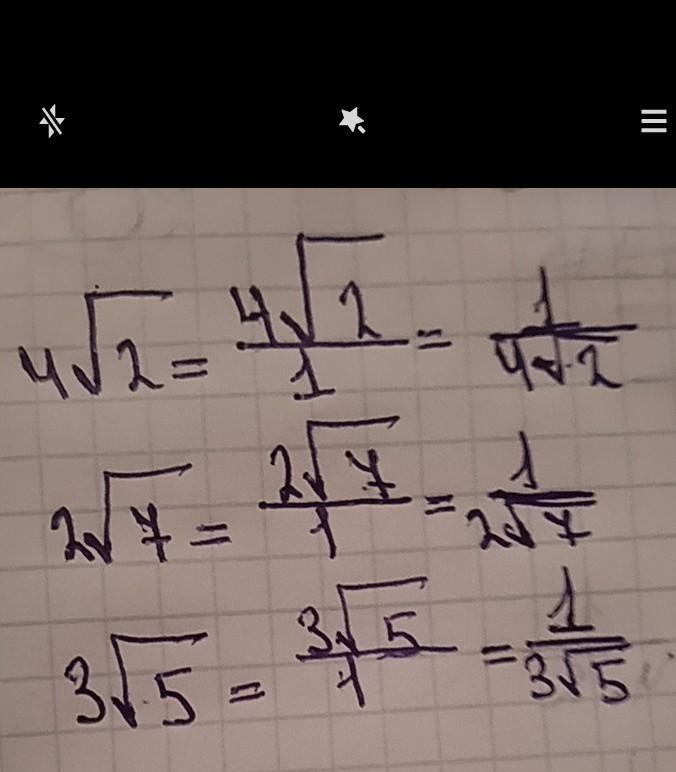 4√2 = 4√2/1 = 1/4√2
2√7 = 2√7/1 = 1/2√7
3√5 = 3√5/1 = 1/3√5